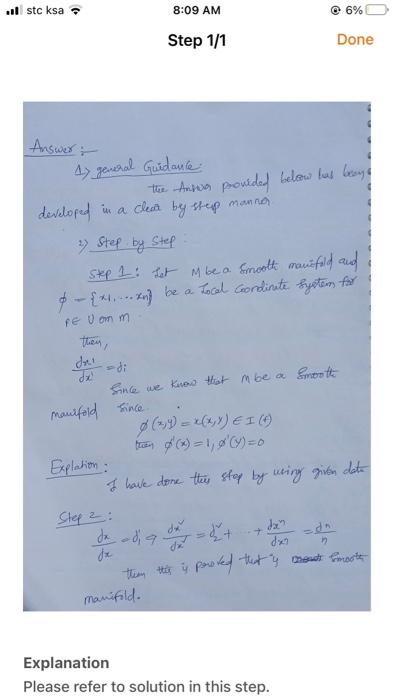 stc ksa 8:09 AM 6%
Step 1/1 Done
Answer :-
1) general Guidance:
The Answer provided below has been
developed in a clear by step manner
2) Step by Step :
Step 1 : Let M be a Smooth manifold and
ϕ = {x1, ... xn} be a Local Coordinate System for
PE U on m .
then,
dx1/dx1 = di
Since we know that M be a Smooth
manifold Since.
ϕ(x,y) = x(x,y) ∈ I(t)
then ϕ'(x) = 1, ϕ'(y) = 0
Explation :
I have done this step by using given data
Step 2 :
then this is proved that is Smooth
manifold.
Explanation
Please refer to solution in this step.